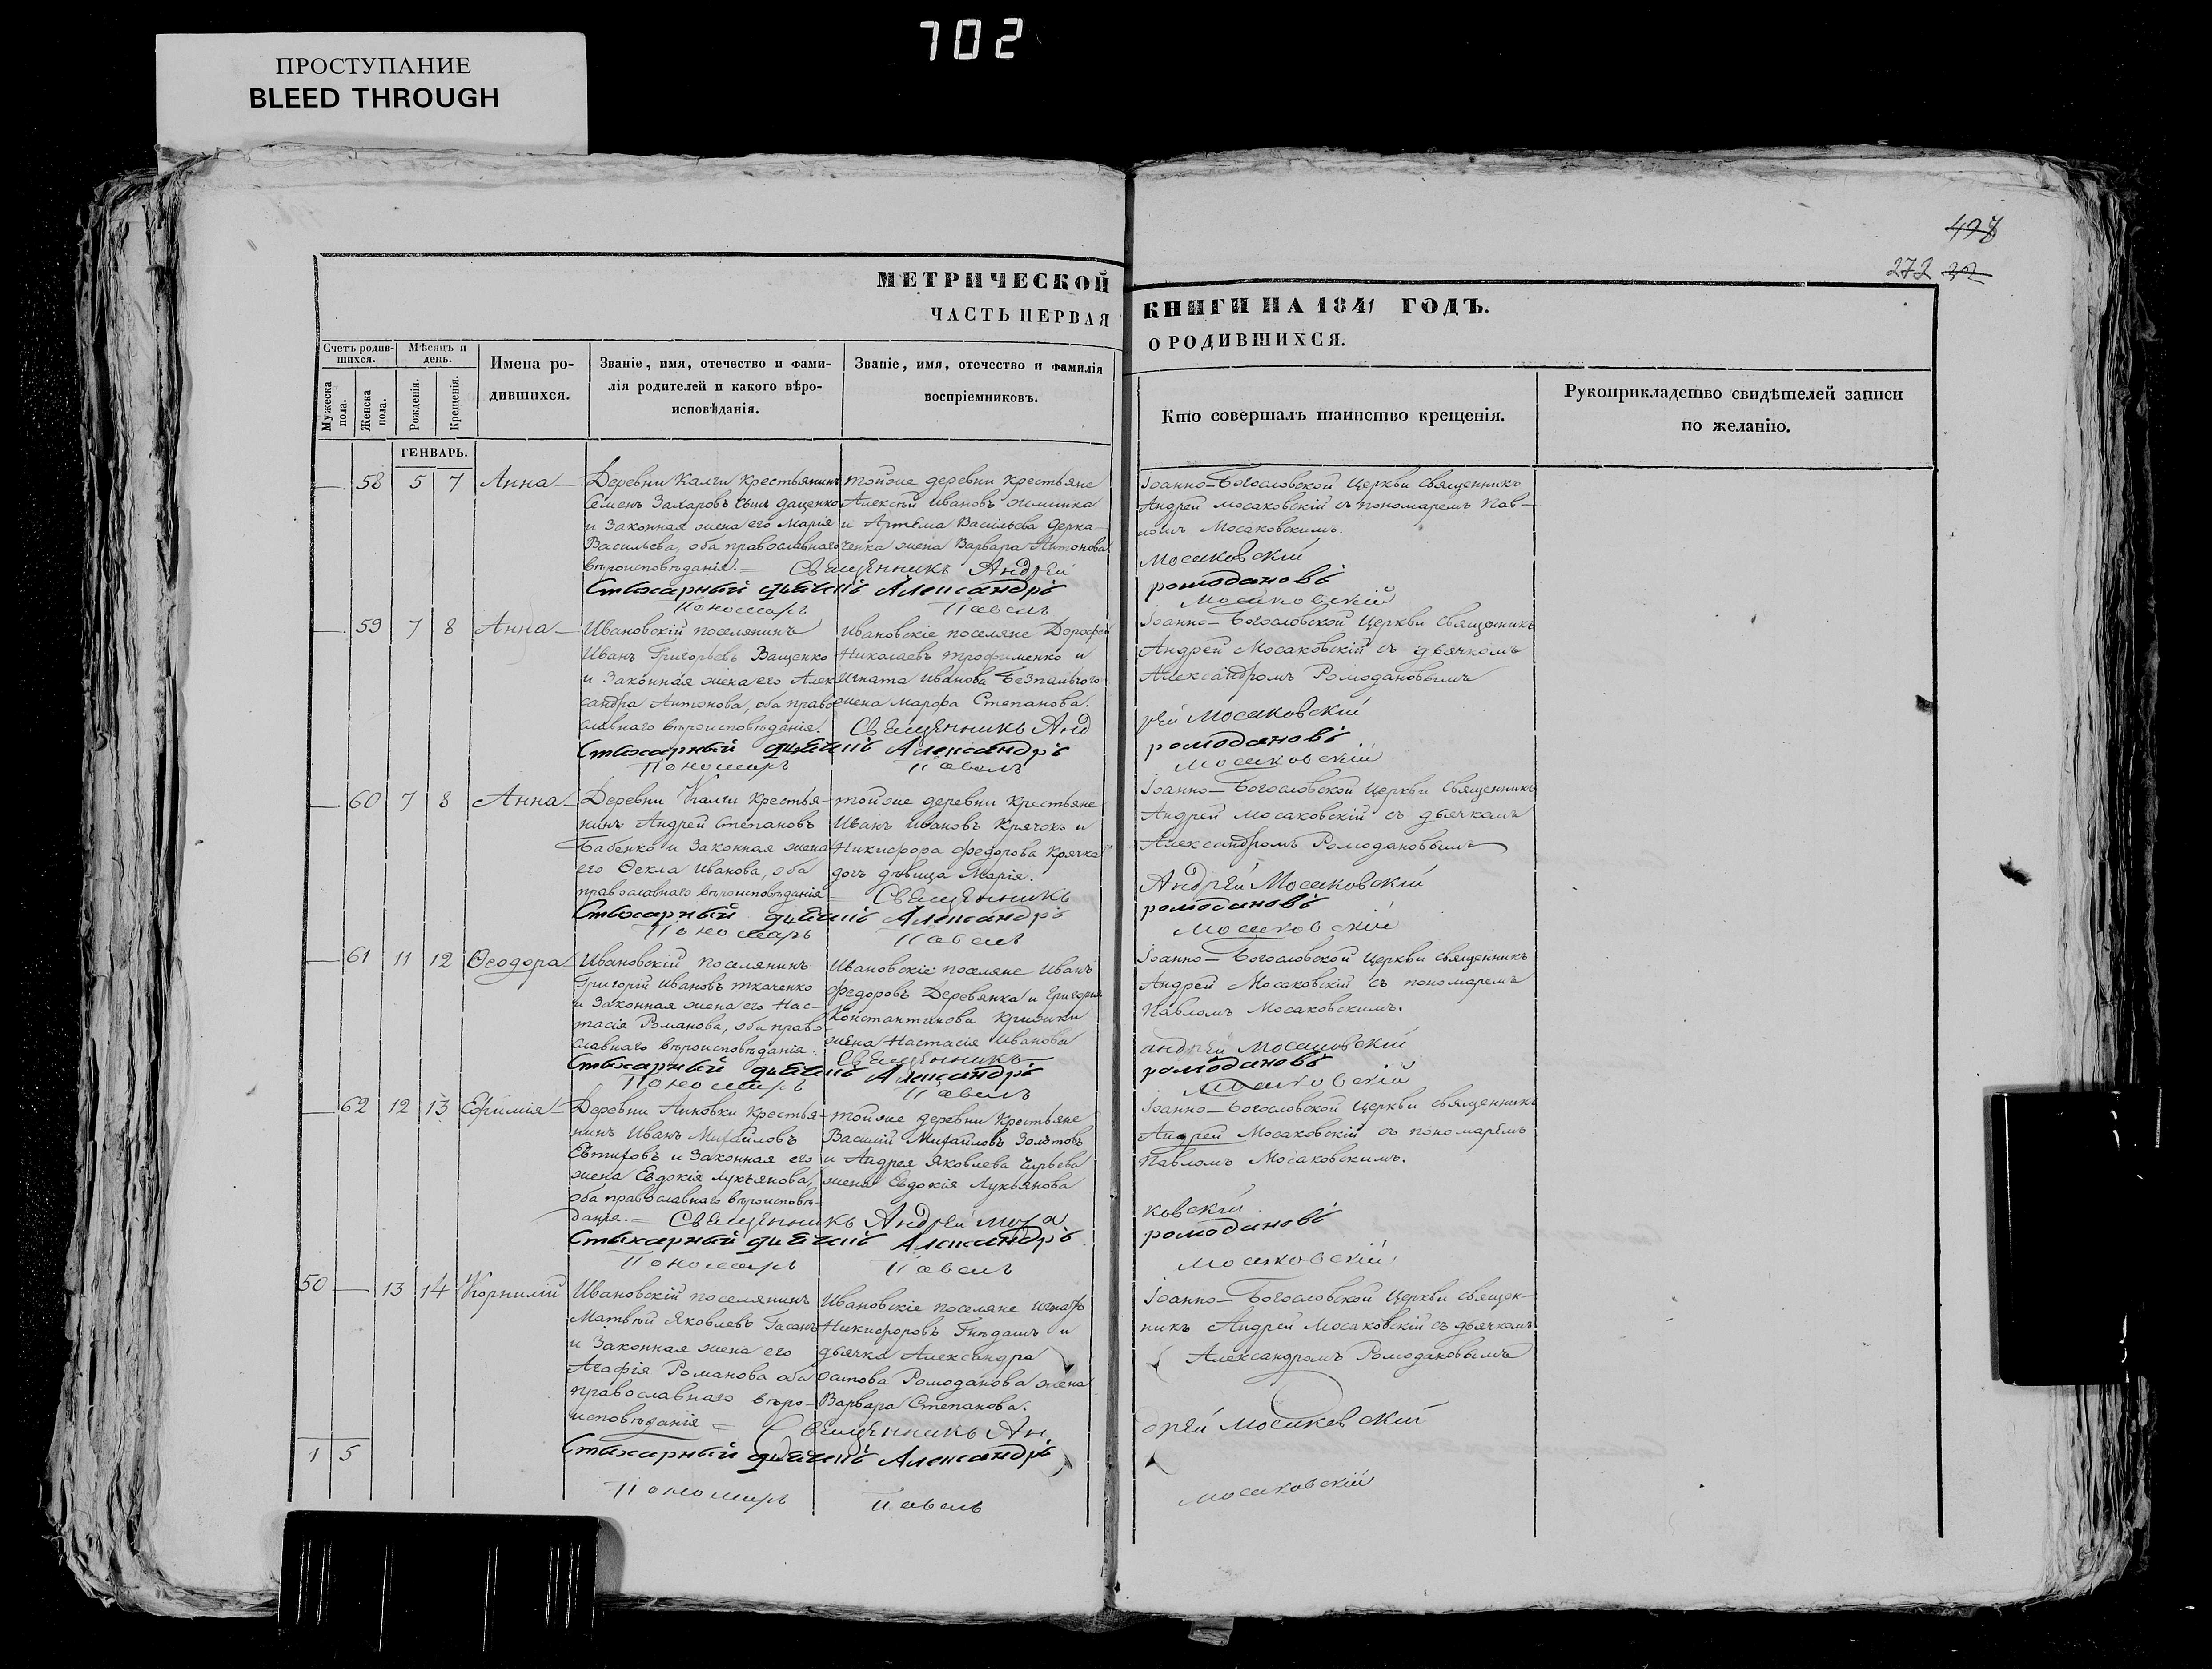 ПРОСТУПАНИЕ
BLEED THROUGH
702
498
272 22
МЕТРИЧЕСКОЙ
ЧАСТЬ ПЕРВАЯ
КНИГИ НА 1841 ГОДЪ.
О РОДИВШИХСЯ.
Счетъ родив-
шихся.
Мужеска
пола.
Женска
пола.
Мѣсяцъ и
день.
Рожденія.
Крещенія.
Имена ро-
дившихся.
Званіе, имя, отечество и фами-
лія родителей и какого вѣро-
исповѣданія.
Званіе, имя, отечество и фамилія
воспріемниковъ.
Кто совершалъ таинство крещенія.
Рукоприкладство свидѣтелей записи
по желанію.
ГЕНВАРЬ.
58 5 7 Анна
Деревни Калги Крестьянинъ
Семенъ Захаровъ сынъ Даценко
и Законная жена его Марія
Васильева, оба православнаго
вѣроисповѣданія.
тойже деревни Крестьяне
Алексѣй Ивановъ
и Артема Васильева Дерка-
ченка жена Варвара Антонова
Іоанно-Богословской Церкви Священникъ
Андрей Мосаковскій съ пономаремъ Пав-
ломъ Мосаковскимъ.
Священникъ Андрей Мосаковскій
Стихарный дьячекъ Александръ Ромодановъ
Пономарь Павелъ Мосаковскій
59 7 8 Анна
Ивановскій поселянинъ
Иванъ Григорьевъ Ващенко
и Законная жена его Алек-
сандра Антонова, оба право-
славнаго вѣроисповѣданія.
Ивановскіе поселяне Дорофей
Николаевъ Трофименко и
Игната Иванова Безпалого
жена Марфа Степанова.
Іоанно-Богословской Церкви Священникъ
Андрей Мосаковскій съ дьячкомъ
Александромъ Ромодановымъ
Священникъ Андрей Мосаковскій
Стихарный дьячекъ Александръ Ромодановъ
Пономарь Павелъ Мосаковскій
60 7 8 Анна
Деревни Калги Крестья-
нинъ Андрей Степановъ
Бабенко и Законная жена
его Ѳекла Иванова, оба
православнаго вѣроисповѣданія
тойже деревни Крестьяне
Иванъ Ивановъ Крячокъ и
Никифора Федорова Крячка
дочь дѣвица Марія.
Іоанно-Богословской Церкви Священникъ
Андрей Мосаковскій съ дьячкомъ
Александромъ Ромодановымъ
Священникъ Андрей Мосаковскій
Стихарный дьячекъ Александръ Ромодановъ
Пономарь Павелъ Мосаковскій
61 11 12 Ѳеодора
Ивановскій поселянинъ
Григорій Ивановъ Ткаченко
и Законная жена его Нас-
тасія Романова, оба право-
славнаго вѣроисповѣданія.
Ивановскіе поселяне Иванъ
Федоровъ Деревянка и Григорія
Константинова
жена Настасія Иванова
Іоанно-Богословской Церкви Священникъ
Андрей Мосаковскій съ пономаремъ
Павломъ Мосаковскимъ.
Священникъ Андрей Мосаковскій
Стихарный дьячекъ Александръ Ромодановъ
Пономарь Павелъ Мосаковскій
62 12 13 Ефимія
Деревни Анновки Крестья-
нинъ Иванъ Михайловъ
Евтиховъ и Законная его
жена Евдокія Лукьянова,
оба православнаго вѣроисповѣ-
данія.
тойже деревни Крестьяне
Василій Михайловъ Золотовъ
и Андрея Яковлева
жена Евдокія Лукьянова
Іоанно-Богословской Церкви Священникъ
Андрей Мосаковскій съ пономаремъ
Павломъ Мосаковскимъ.
Священникъ Андрей Мосаковскій
Стихарный дьячекъ Александръ Ромодановъ
Пономарь Павелъ Мосаковскій
50 13 14 Корнилій
Ивановскій поселянинъ
Матвѣй Яковлевъ
и Законная жена его
Агафія Романова оба
православнаго вѣро-
исповѣданія
Ивановскіе поселяне Игнатъ
Никифоровъ Гнѣдашъ и
дьячка Александра
Осипова Ромоданова жена
Варвара Степанова.
Іоанно-Богословской Церкви Священ-
никъ Андрей Мосаковскій съ дьячкомъ
Александромъ Ромодановымъ
Священникъ Андрей Мосаковскій
Стихарный дьячекъ Александръ
Пономарь Павелъ Мосаковскій
1 5